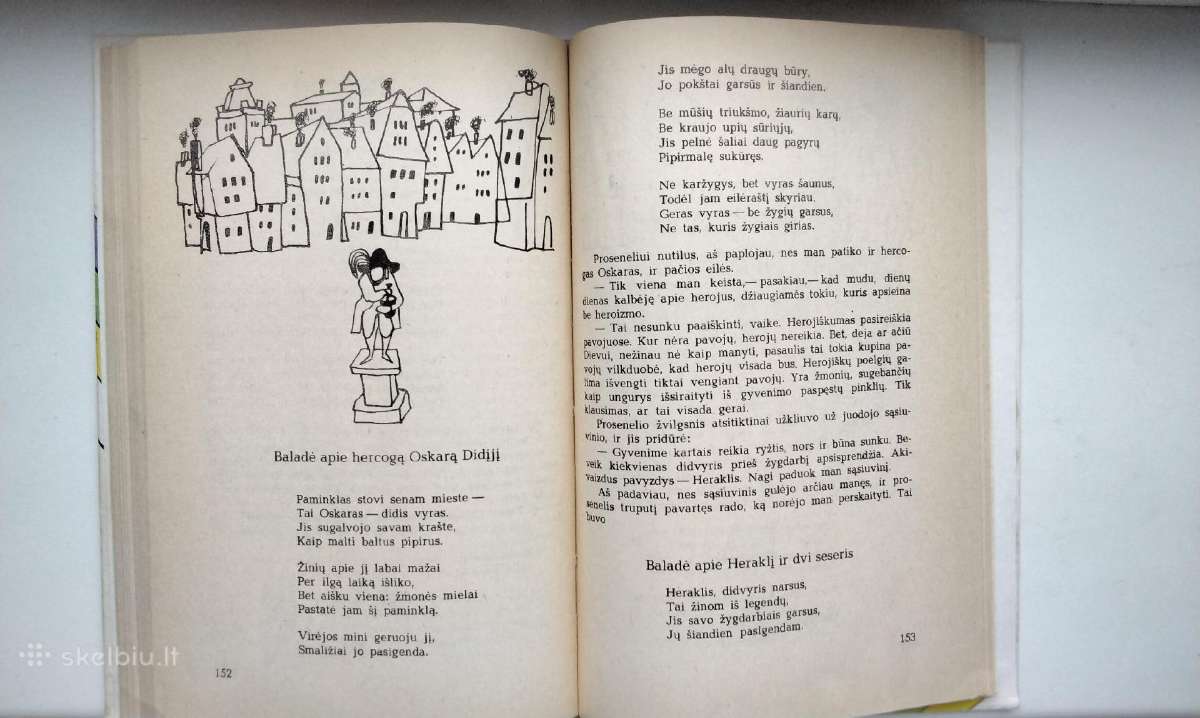 Baladė apie hercogą Oskarą Didįjį
Paminklas stovi senam mieste —
Tai Oskaras — didis vyras.
Jis sugalvojo savam krašte,
Kaip malti baltus pipirus.
Žinių apie jį labai mažai
Per ilgą laiką išliko,
Bet aišku viena: žmonės mielai
Pastatė jam šį paminklą.
Virėjos mini geruoju jį,
Smaližiai jo pasigenda.
152
skelbiu.lt
Jis mėgo alų draugų būry,
Jo pokštai garsūs ir šiandien.
Be mūšių triukšmo, žiaurių karų,
Be kraujo upių sūriųjų,
Jis pelnė šaliai daug pagyrų
Pipirmalę sukūręs.
Ne karžygys, bet vyras šaunus,
Todėl jam eilėraštį skyriau.
Geras vyras — be žygių garsus,
Ne tas, kuris žygiais girias.
Proseneliui nutilus, aš paplojau, nes man patiko ir herco-
gas Oskaras, ir pačios eilės.
— Tik viena man keista,— pasakiau,— kad mudu, dienų
dienas kalbėję apie herojus, džiaugiamės tokiu, kuris apsieina
be heroizmo.
— Tai nesunku paaiškinti, vaike. Herojiškumas pasireiškia
pavojuose. Kur nėra pavojų, herojų nereikia. Bet, deja ar ačiū
Dievui, nežinau nė kaip manyti, pasaulis tai tokia kupina pa-
vojų vilkduobė, kad herojų visada bus. Herojiškų poelgių ga-
lima išvengti tiktai vengiant pavojų. Yra žmonių, sugebančių
kaip ungurys išsiraityti iš gyvenimo paspęstų pinklių. Tik
klausimas, ar tai visada gerai.
Prosenelio žvilgsnis atsitiktinai užkliuvo už juodojo sąsiu-
vinio, ir jis pridūrė:
— Gyvenime kartais reikia ryžtis, nors ir būna sunku. Be-
veik kiekvienas didvyris prieš žygdarbį apsisprendžia. Aki-
vaizdus pavyzdys — Heraklis. Nagi paduok man sąsiuvinį.
Aš padaviau, nes sąsiuvinis gulėjo arčiau manęs, ir pro-
senelis truputį pavartęs rado, ką norėjo man perskaityti. Tai
buvo
Baladė apie Heraklį ir dvi seseris
Heraklis, didvyris narsus,
Tai žinom iš legendų,
Jis savo žygdarbiais garsus,
Jų šiandien pasigendam.
153